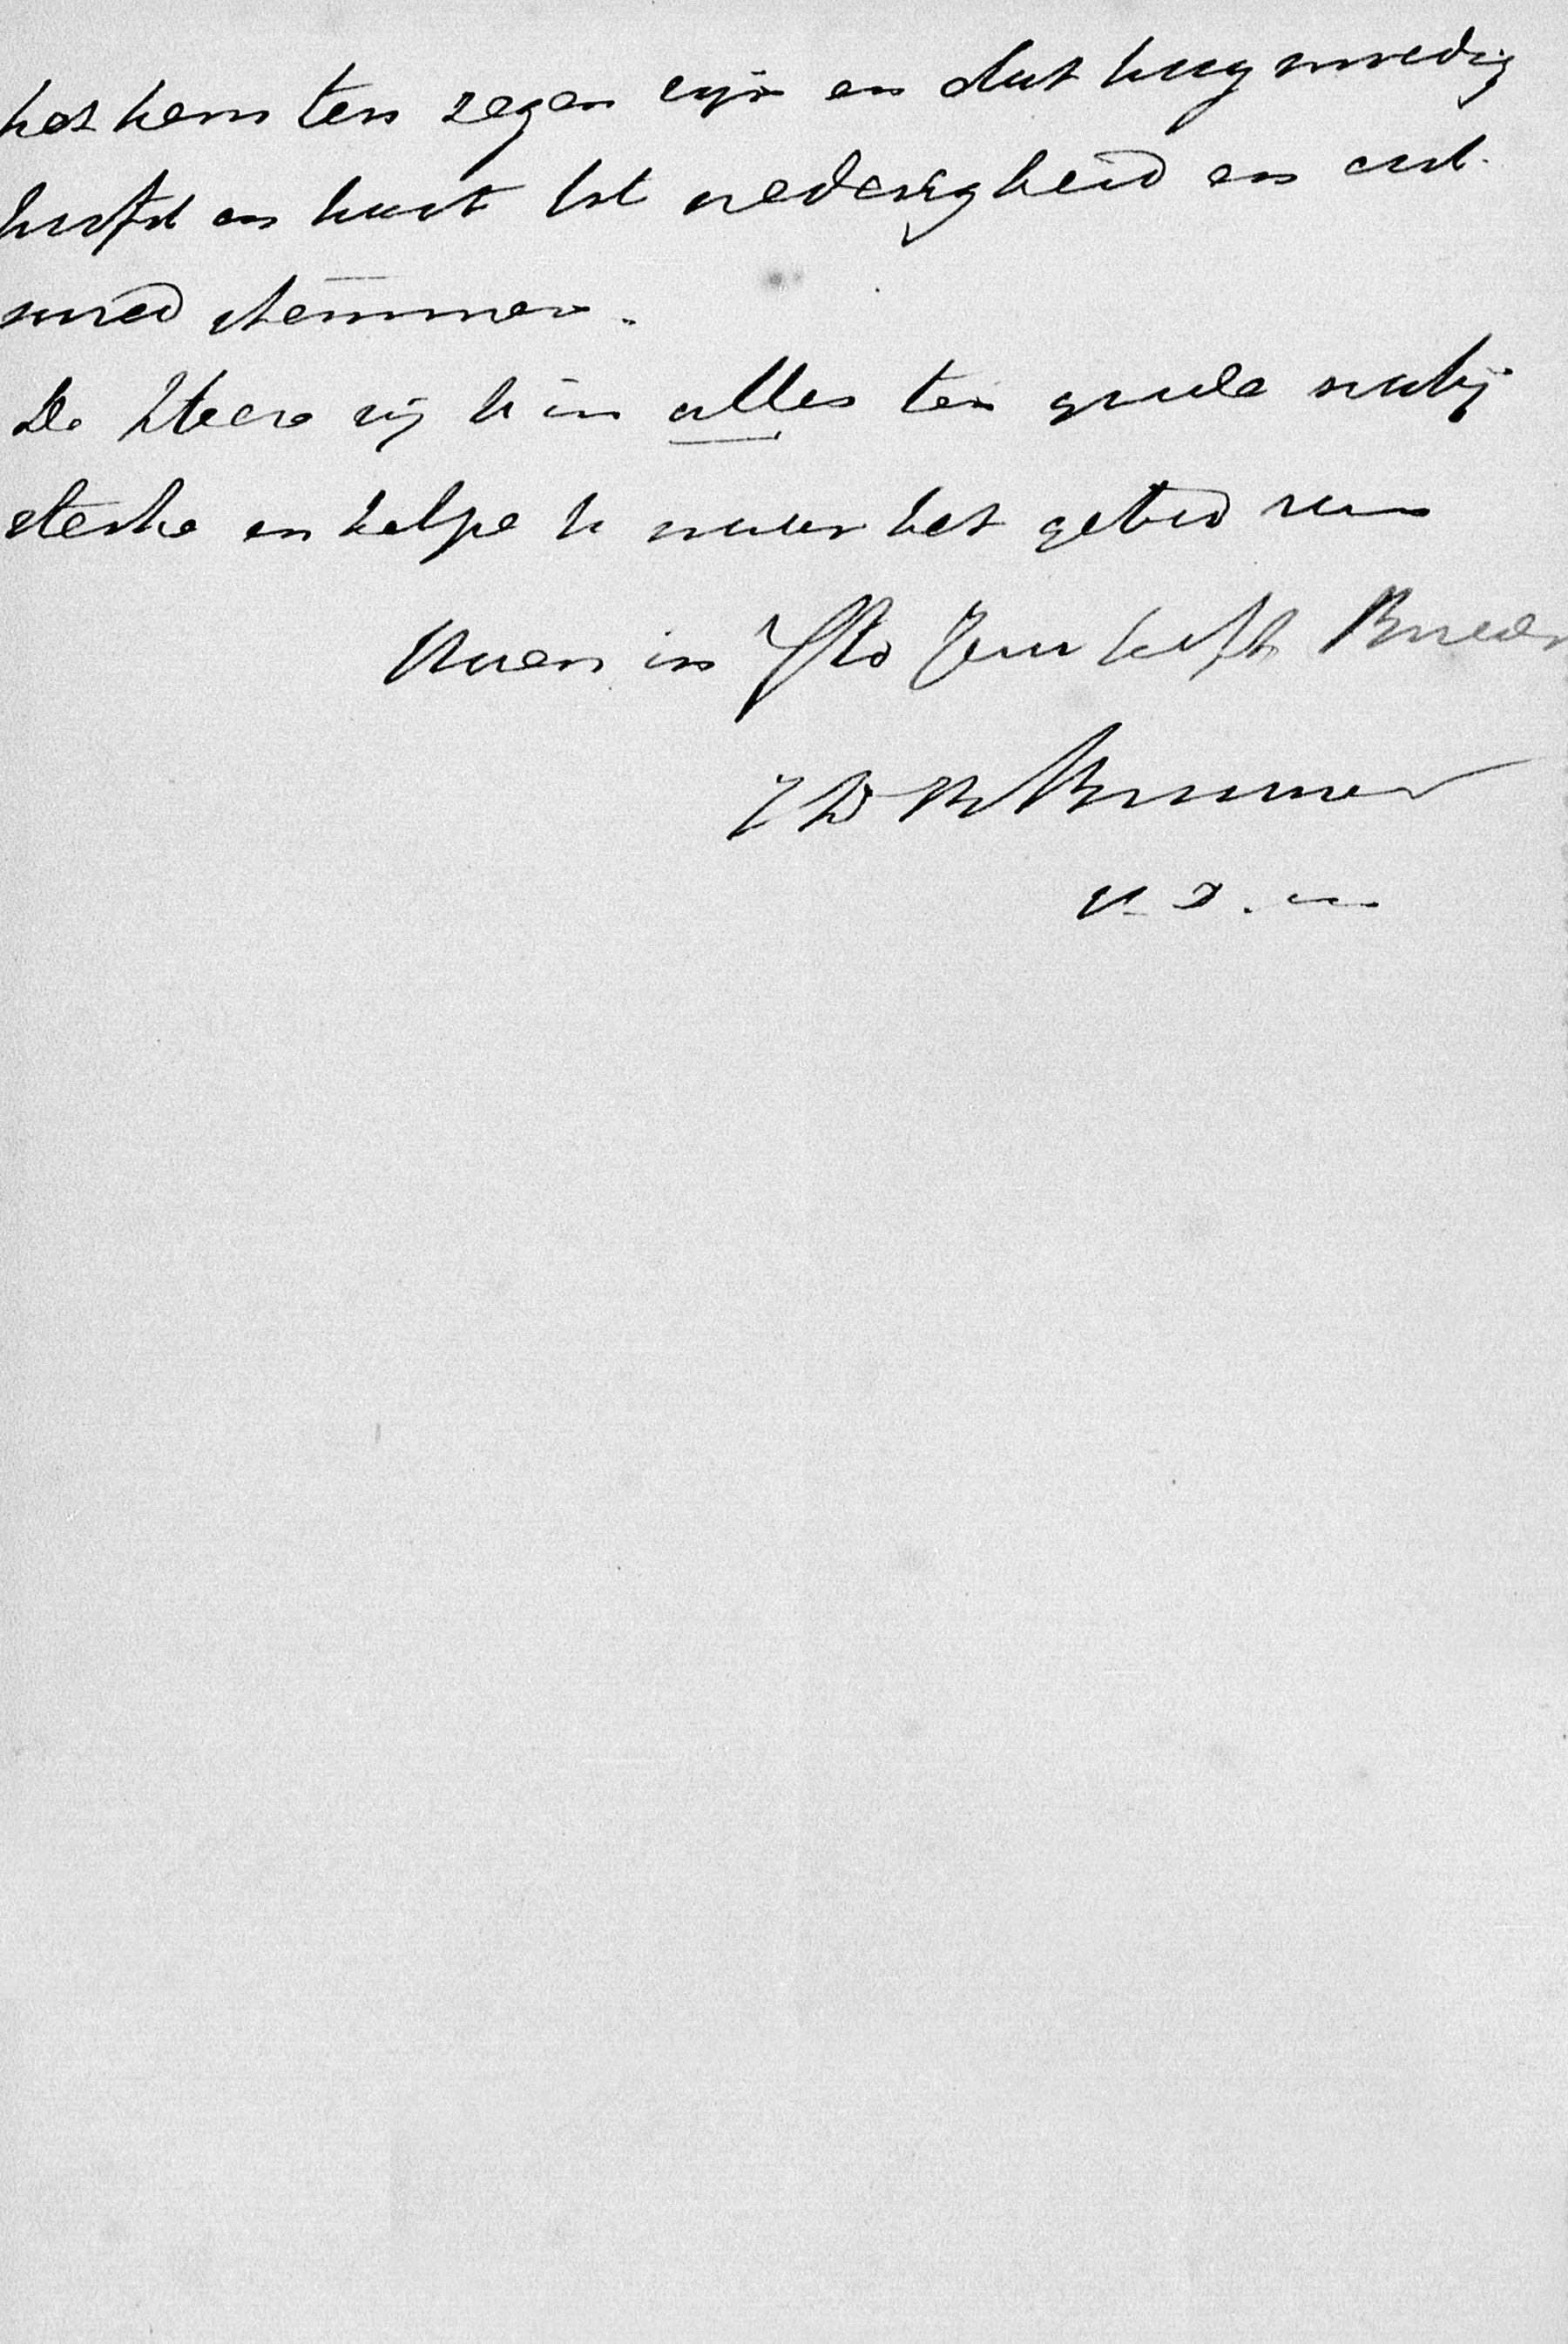 het hem ten zegen zijn en dat hoogmoedig
hoofd en hart tot nederigheid en oot-
moed stemmen.
De Heere zij U in alles ten goede nabij
sterke en helpe U naar het gebed van
Uwen in Chto Zeer liefh Broeder
J D M Brummer
V. D. M